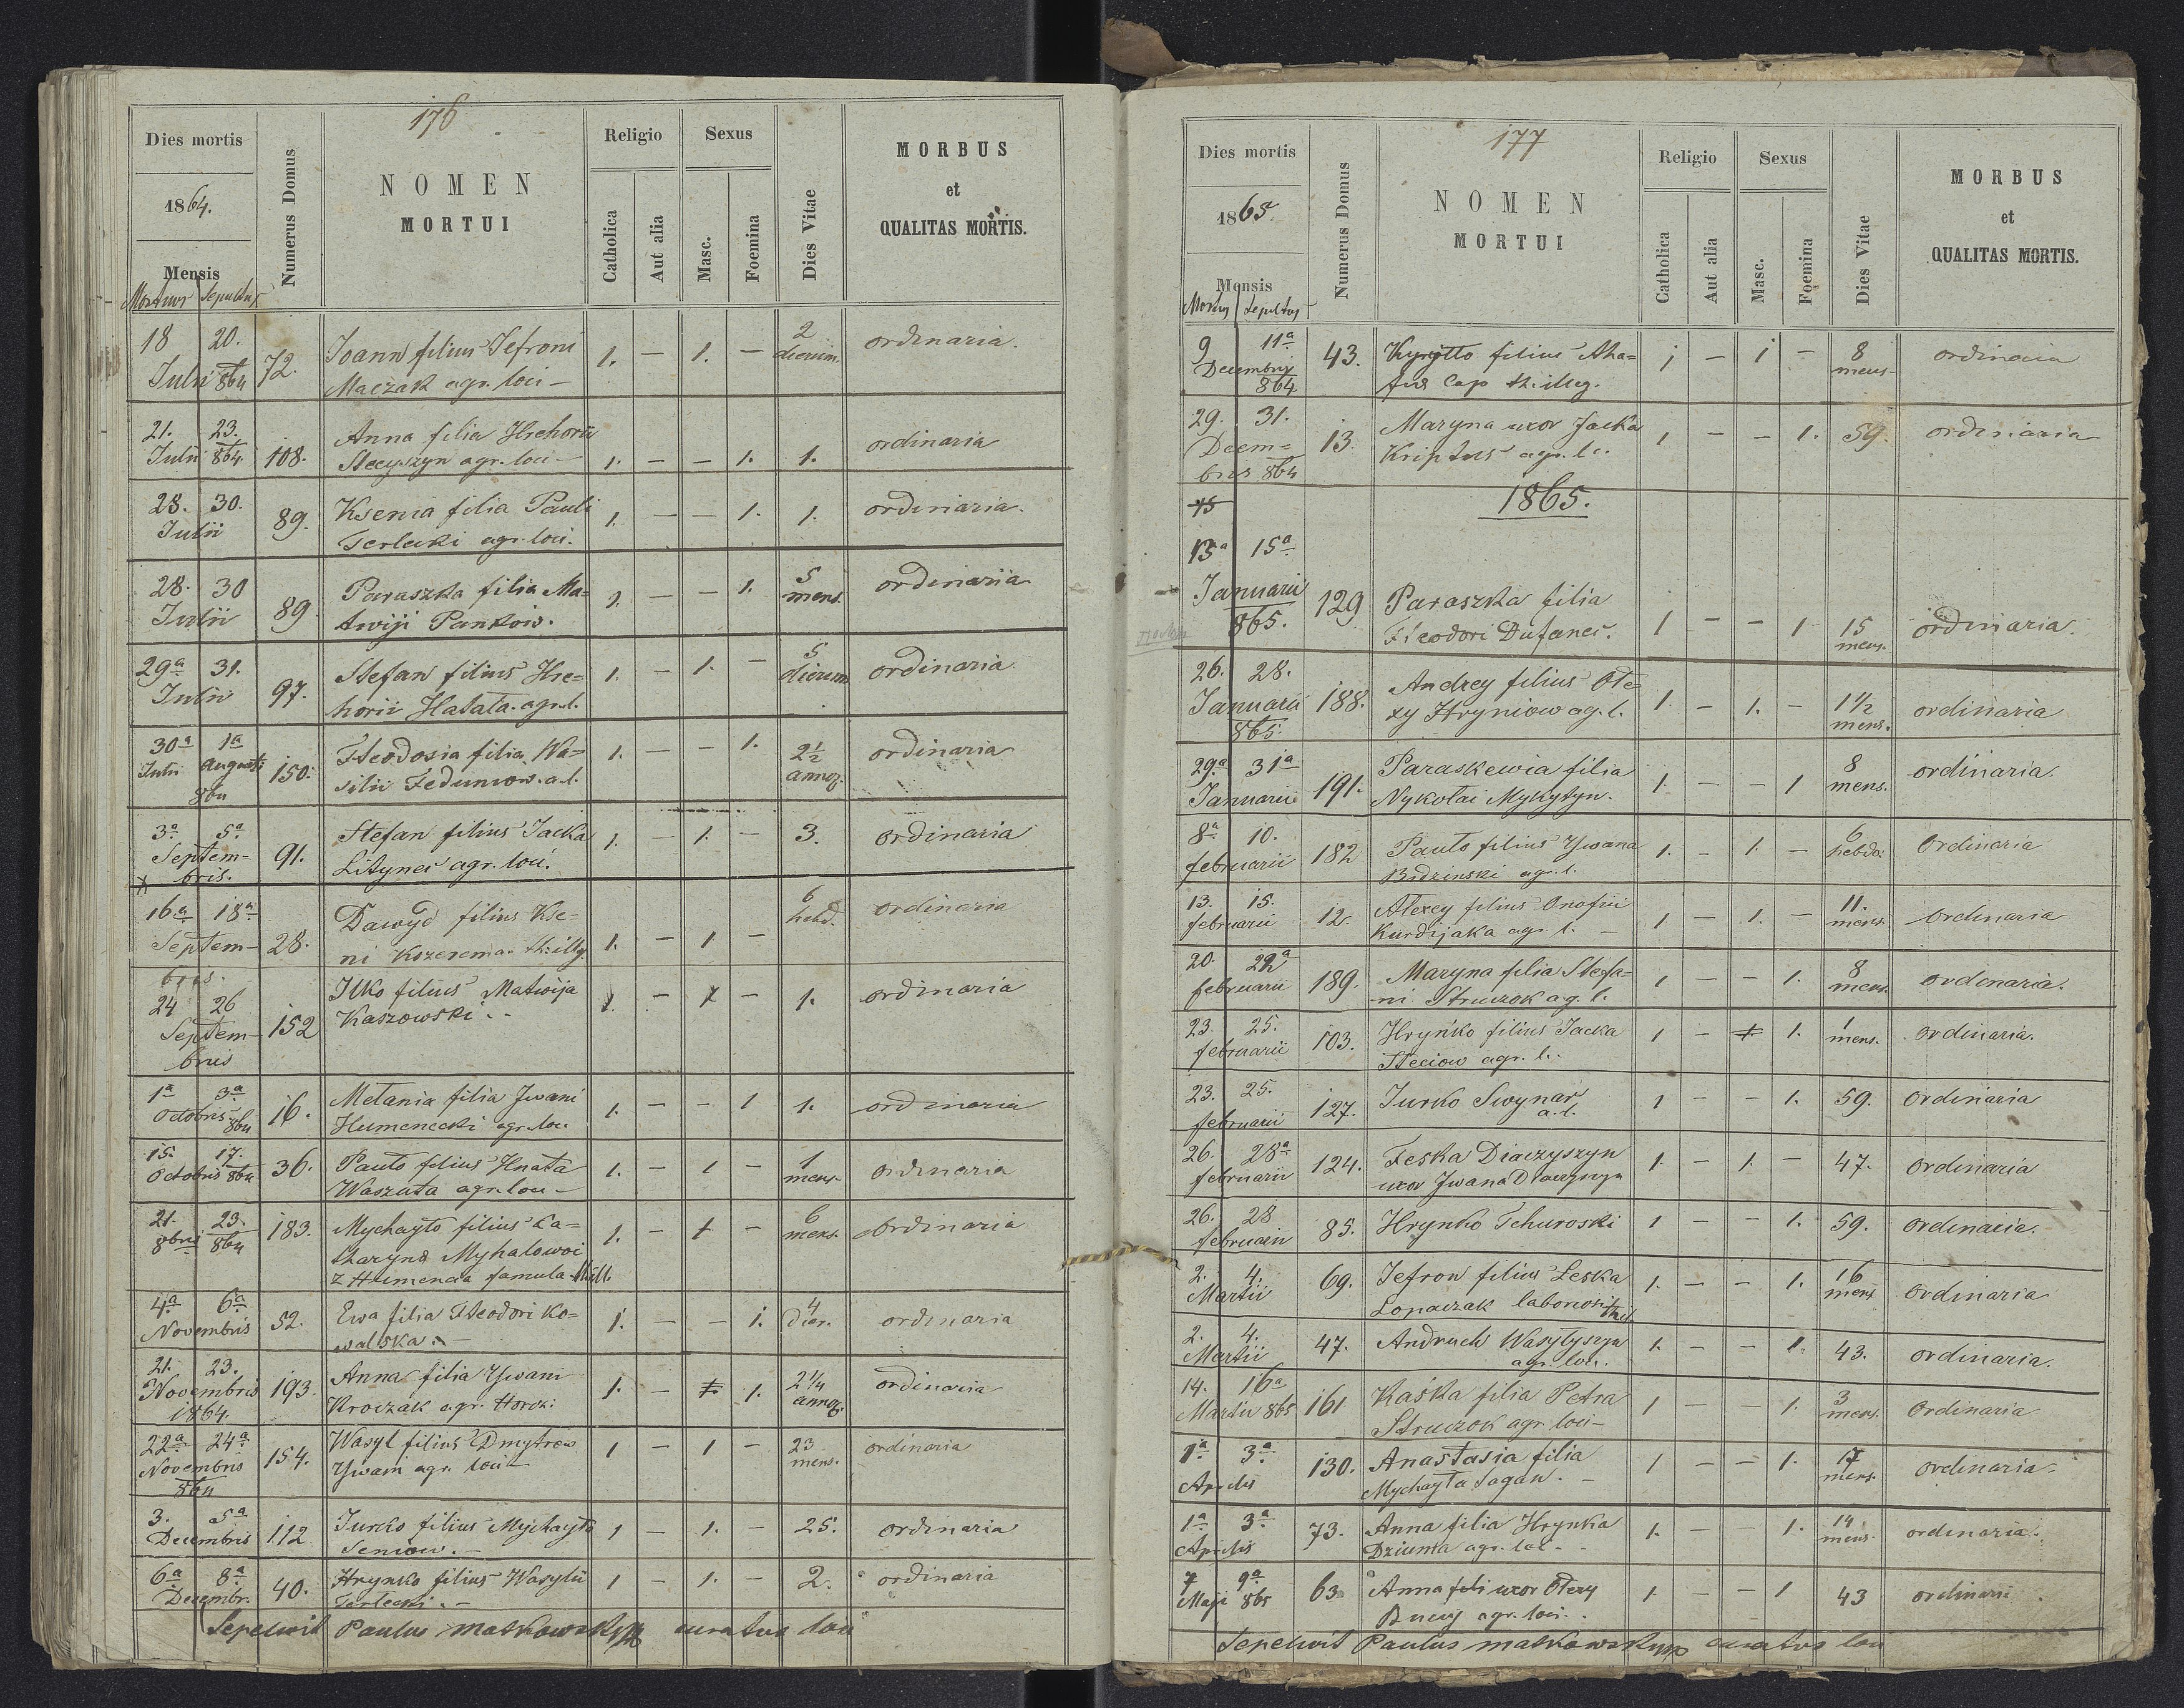 176
Dies mortis
1864.
Mensis
Mortuus Sepultus
Numerus Domus
NOMEN
MORTUI
Religio
Catholica
Aut alia
Sexus
Masc.
Foemina
Dies Vitae
MORBUS
et
QUALITAS MORTIS.
18 20. Joann filius Jefroni 2 ordinaria.
Julii 864 72. Maczak agr. loci – 1. – 1. – dierum.
21. 23. Anna filia Hrehorii ordinaria
Julii 864 108. Stecyszyn agr. loci – 1. – – 1. 1.
28. 30. 89. Ksenia filia Pauli 1. – – 1. 1. ordinaria.
Julii Terlecki agr. loci.
28. 30 Paraszka filia Ma= 1. – – 1. 5 ordinaria
Julii 89. twiji Pankow. mens.
29a 31. Stefan filius Hre= 1. – 1. – 5 ordinaria.
Julii 97. horii Halata. agr. l. dierum
30a 1a Theodosia filia Wa= 1. – – 1. 2½ ordinaria
Julii Augusti 150. silii Feduniow. a. l. annor.
864
3a 5a Stefan filius Jacka 1. – 1. – 3. ordinaria
Septem= 91. Litynec agr. loci.
bris.
16a 18a Dawyd filius Kse= 6 ordinaria
Septem– 28. ni Kozerema. th. illeg. 1. – 1 – hebd.
bris.
24 26 Ilko filius Matwija 1. – 1 – 1. ordinaria
Septem– 152 Kaszowski. –
bris
1a 3a Melania filia Jwani 1. – – 1 1. ordinaria
Octobris 864 16. Humenecki agr. loci
15. 17. 36. Pauło filius Hnata 1. – 1 – 1 ordinaria
Octobris 864 Waszata agr. loci – mens.
21. 23. 183. Mychayło filius Ka= 1. – 1 – 6 ordinaria
8bris 864 tharyna Myhalowoi mens.
z Humenca famula
4a 6a 52. Ewa filia Theodori Ko= 1. – – 1. 4 ordinaria
Novembris walska. – dier.
21. 23. Anna filia Ywani 2¼ ordinaria
Novembris 193. Kroczak agr. 1. – 1. 1. annor.
1864.
22a 24a Wasyl filius Dmytrow 1 – 1 – 23 ordinaria
Novembris 154. Ywain agr. loci – mens.
864
3. 5a Jurko filius Mychayła 1 – 1. – 25. ordinaria
Decembris 112 Seniow. –
6a 8a Hrynko filius Wasylii 1 – 1. – 2. ordinaria
Decembr. 40. Terlecki. –
Sepelivit Paulus Matkowski curatus loci
177
Dies mortis
1865.
Mensis
Mortuus Sepultus
Numerus Domus
NOMEN
MORTUI
Religio
Catholica
Aut alia
Sexus
Masc.
Foemina
Dies Vitae
MORBUS
et
QUALITAS MORTIS.
9 11a 43. Kyryłło filius Aha= 1 – 1 – 8 ordinaria
Decembris fus Cap th. illeg. mens –
864
29. 31. Maryna uxor Jacka 1 – – 1. 59. ordinaria
Decem= 13. Kriptus agr. l.
bris 864
15 1865.
13a 15a
Januarii 129 Paraszka filia ordinaria.
865. Theodori Dufanec. 1 – – 1 15
mens.
26. 28. Andrey filius Ole=
Januarii 188. xy Hryniow ag. l. 1. – 1. – 1½ ordinaria
865. mens.
29.a 31a Paraskewia filia 8 ordinaria.
Januarii 191. Nykolai Mykytyn. 1. – – 1 mens.
8a 10. Pauło filius Ywana 1. – 1. – 6 Ordinaria
februarii 182 Bidzinski agr. l. hebdo.
13. 15. Alexey filius Onofrii 11. ordinaria
februarii 12. Kurdijaka agr. l. – 1 – 1. – mens.
20. 22a Maryna filia Stefa= 1 – – 1. 8 ordinaria.
februarii 189. ni Struczok ag. l. mens.
23. 25. Hryńko filius Jacka 1 – 1 1. 1 ordinaria.
februarii 103. Steciow agr. l. mens.
23. 25. Jurko Swynar 1 – – 1. 59. ordinaria
februarii 127. a. l.
26. 28a Feska Diaczyszyn 1. – 1. – 47. ordinaria
februarii 124. uxor Jwana Diaczyszyn
26. 28 Hrynko Tchuroski 1 – – 1. 59. ordinaria.
februarii 85.
2. 4. 69. Jefron filius Leska 1. – – 1. 16 ordinaria
Martii Lopaczak laboriosi mens
2. 4. 47. Andruch Wasylyszyn 1. – – 1. 43. ordinaria.
Martii agr. loci.
14. 16a Kaśka filia Petra 1 – – 1. 3 Ordinaria
Martii 865 161 Struczok agr loci – mens.
1a 3a 130. Anastasia filia 1 – – 1. 17 ordinaria.
Aprilis Mychayła Sagan. – mens.
1a 3a 73. Anna filia Hrynka 1. – – 1. 14 ordinaria.
Aprilis Dziuma agr. loc. – mens.
7 9a 63 Anna uxor Olexy 1. – – 1 43 ordinari
Maji 865 agr. loci.
Sepelivit Paulus Matkowski curatus loci